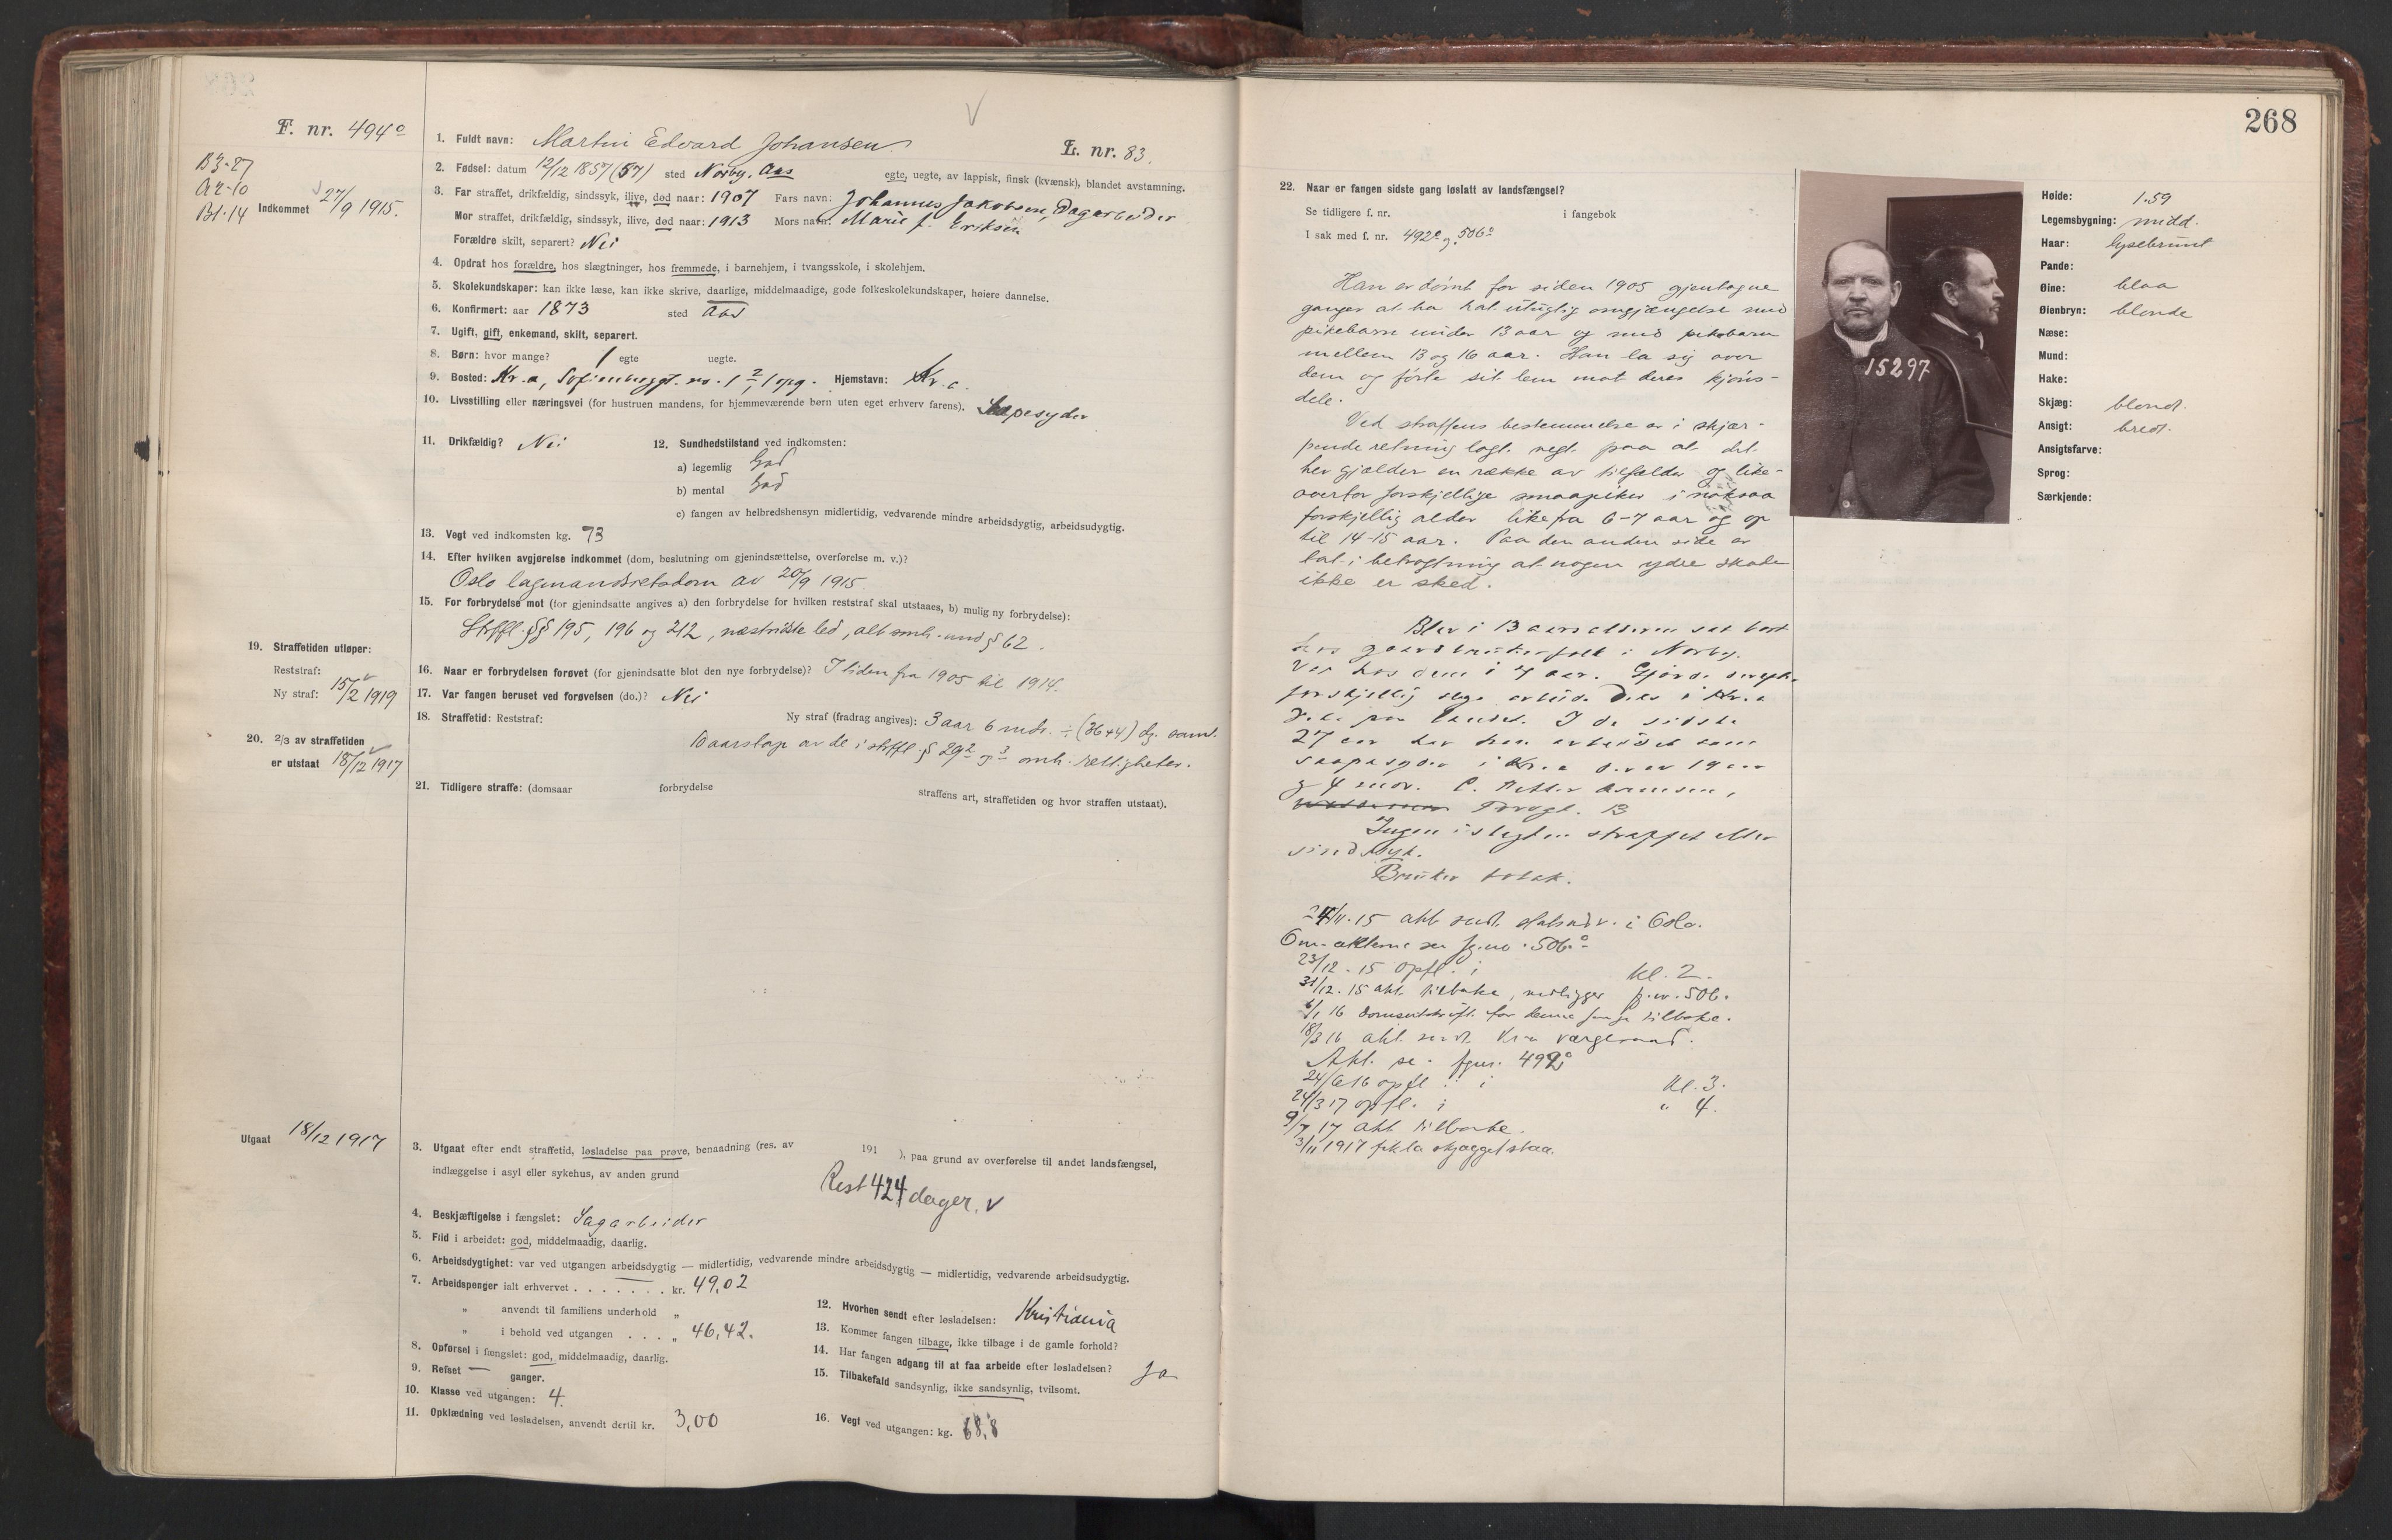 F. nr. 494°
B3-27
A2-10
B1-14
Indkommet 27/9 1915.
1. Fuldt navn: Martin Edvard Johansen
L. nr. 83.
2. Fødsel: datum 12/12 1857 (57) sted Norby, Aas egte, uegte, av lappisk, finsk (kvænsk), blandet avstamning.
3. Far straffet, drikfældig, sindssyk, ilive, død naar: 1907 Fars navn: Johannes Jakobsen, Dagarbeider
Mor straffet, drikfældig, sindssyk, ilive, død naar: 1913 Mors navn: Marie f. Eriksen
Forældre skilt, separert? Nei
4. Opdrat hos forældre, hos slægtninger, hos fremmede, i barnehjem, i tvangsskole, i skolehjem.
5. Skolekundskaper: kan ikke læse, kan ikke skrive, daarlige, middelmaadige, gode folkeskolekundskaper, høiere dannelse.
6. Konfirmert: aar 1873 sted Aas
7. Ugift, gift, enkemand, skilt, separert.
8. Børn: hvor mange? 1 egte uegte.
9. Bosted: Kr.a, no. 1 2, 1 opg. Hjemstavn: Kr.a.
10. Livsstilling eller næringsvei (for hustruen mandens, for hjemmeværende børn uten eget erhverv farens). Sæpesyder
11. Drikfældig? Nei 12. Sundhetstilstand ved indkomsten:
a) legemlig God
b) mental God
c) fangen av helbredshensyn midlertidig, vedvarende mindre arbeidsdygtig, arbeidsudygtig.
13. Vegt ved indkomsten kg. 73
14. Efter hvilken avgjørelse indkommet (dom, beslutning om gjenindsættelse, overførelse m. v.)?
Oslo lagmandsretsdom av 20/9 1915.
15. For forbrydelse mot (for gjenindsatte angives a) den forbrydelse for hvilken reststraf skal utstaaes, b) mulig ny forbrydelse):
Strffl. §§ 195, 196 og 212, næstsidste led, alt smh. med § 62.
16. Naar er forbrydelsen forøvet (for gjenindsatte blot den nye forbrydelse)? I tiden fra 1905 til 1914.
17. Var fangen beruset ved forøvelsen (do.)? Nei
18. Straffetid: Reststraf: Ny straf (fradrag angives): 3 aar 6 mdr. ÷ (36+4) dg. samt
10 aars tap av de i strffl. § 29 2 og 3 omh. rettigheter.
19. Straffetiden utløper:
Reststraf:
Ny straf: 15/2 1919
20. 2/3 av straffetiden
er utstaat 18/12 1917
21. Tidligere straffe: (domsaar forbrydelse straffens art, straffetiden og hvor straffen utstaat).
Utgaat 18/12 1917
3. Utgaat efter endt straffetid, løsladelse paa prøve, benaadning (res. av 191 ), paa grund av overførelse til andet landsfængsel,
indlæggelse i asyl eller sykehus, av anden grund
Rest 424 dager. V
4. Beskjæftigelse i fængslet: Sagarbeider
5. Flid i arbeidet: god, middelmaadig, daarlig.
6. Arbeidsdygtighet: var ved utgangen arbeidsdygtig — midlertidig, vedvarende mindre arbeidsdygtig — midlertidig, vedvarende arbeidsudygtig.
7. Arbeidspenger ialt erhvervet . . . . . . . kr. 49,02
" anvendt til familiens underhold "
" i behold ved utgangen . . . " 46,42.
8. Opførsel i fængslet: god, middelmaadig, daarlig.
9. Refset — ganger.
10. Klasse ved utgangen: 4.
11. Opklædning ved løsladelsen, anvendt dertil kr. 3,00
12. Hvorhen sendt efter løsladelsen: Kristiania
13. Kommer fangen tilbage, ikke tilbage i de gamle forhold?
14. Har fangen adgang til at faa arbeide efter løsladelsen? Ja
15. Tilbakefald sandsynlig, ikke sandsynlig, tvilsomt.
16. Vegt ved utgangen: kg. 68,8
268
22. Naar er fangen sidste gang løslatt av landsfængsel?
Se tidligere f. nr. i fangebok
I sak med f. nr. 492° og 506°
Han er dømt for siden 1905 gjentagne
ganger at ha hat utugtig omgjængelse med
pikebarn under 13 aar og med pikebarn
mellem 13 og 16 aar. Han la sig over
dem og førte sit lem mot deres kjøns-
dele.
Ved straffens bestemmelse er i skjær-
pende retning lagt vegt paa at det
her gjælder en række av tilfælder og like-
overfor forskjellige smaapiker i
forskjellig alder like fra 6-7 aar og op
til 14-15 aar. Paa den anden side er
tat i betragtning at nogen ydre skade
ikke er sked.
Blev i 13 aars alderen sat bort
hos gaardbrukerfolk i Norby.
Var hos dem i 4 aar. Gjorde
forskjellig slags arbeide dels i Kr.a
dels paa landet. I de sidste
27 aar har han arbeidet som
sæpesyder i Kr.a derav 19 aar
og 4 mdr. C.
Torvgt. 13
Ingen i slegten straffet eller
sindssyk.
Bruker tobak.
24/11.15 akt. sendt statsadv. i Oslo.
Om akterne se fg.no. 506°
23/12.15 opfl. i Kl. 2.
31/12.15 akt. tilbake, vedligger f.nr. 506.
6/1 16 Domsutskrift for denne fange tilbake.
18/3 16 akt. sendt Kr.a værgeraad.
Akt. se fgnr. 492°
24/6 16 opfl. i Kl. 3.
24/3 17 opfl. i " 4.
9/7 17 akt tilbake.
3/11 1917 fik la skjægget staa.
15297
Høide: 1.59
Legemsbygning: midd.
Haar: lysebrunt
Pande:
Øine: blaa
Øienbryn: blonde
Næse:
Mund:
Hake:
Skjæg: blond.
Ansigt: bred.
Ansigtsfarve:
Sprog:
Særkjende: